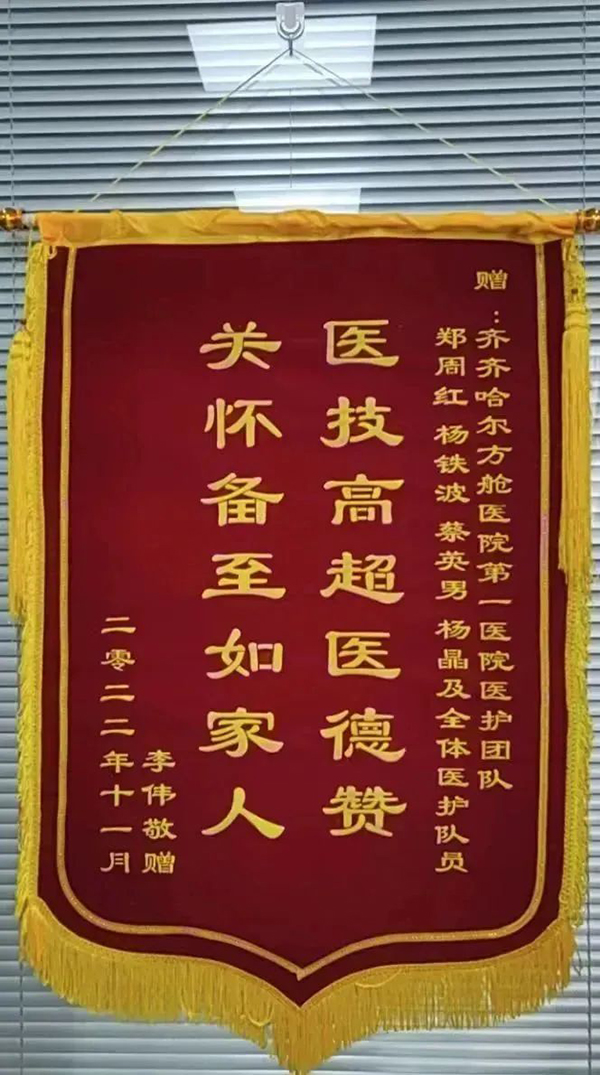 赠：齐齐哈尔方舱医院第一医院医护团队
郑周红 杨铁波 蔡英男 杨晶及全体医护队员
医技高超医德赞
关怀备至如家人
李伟敬赠
二零二二年十一月